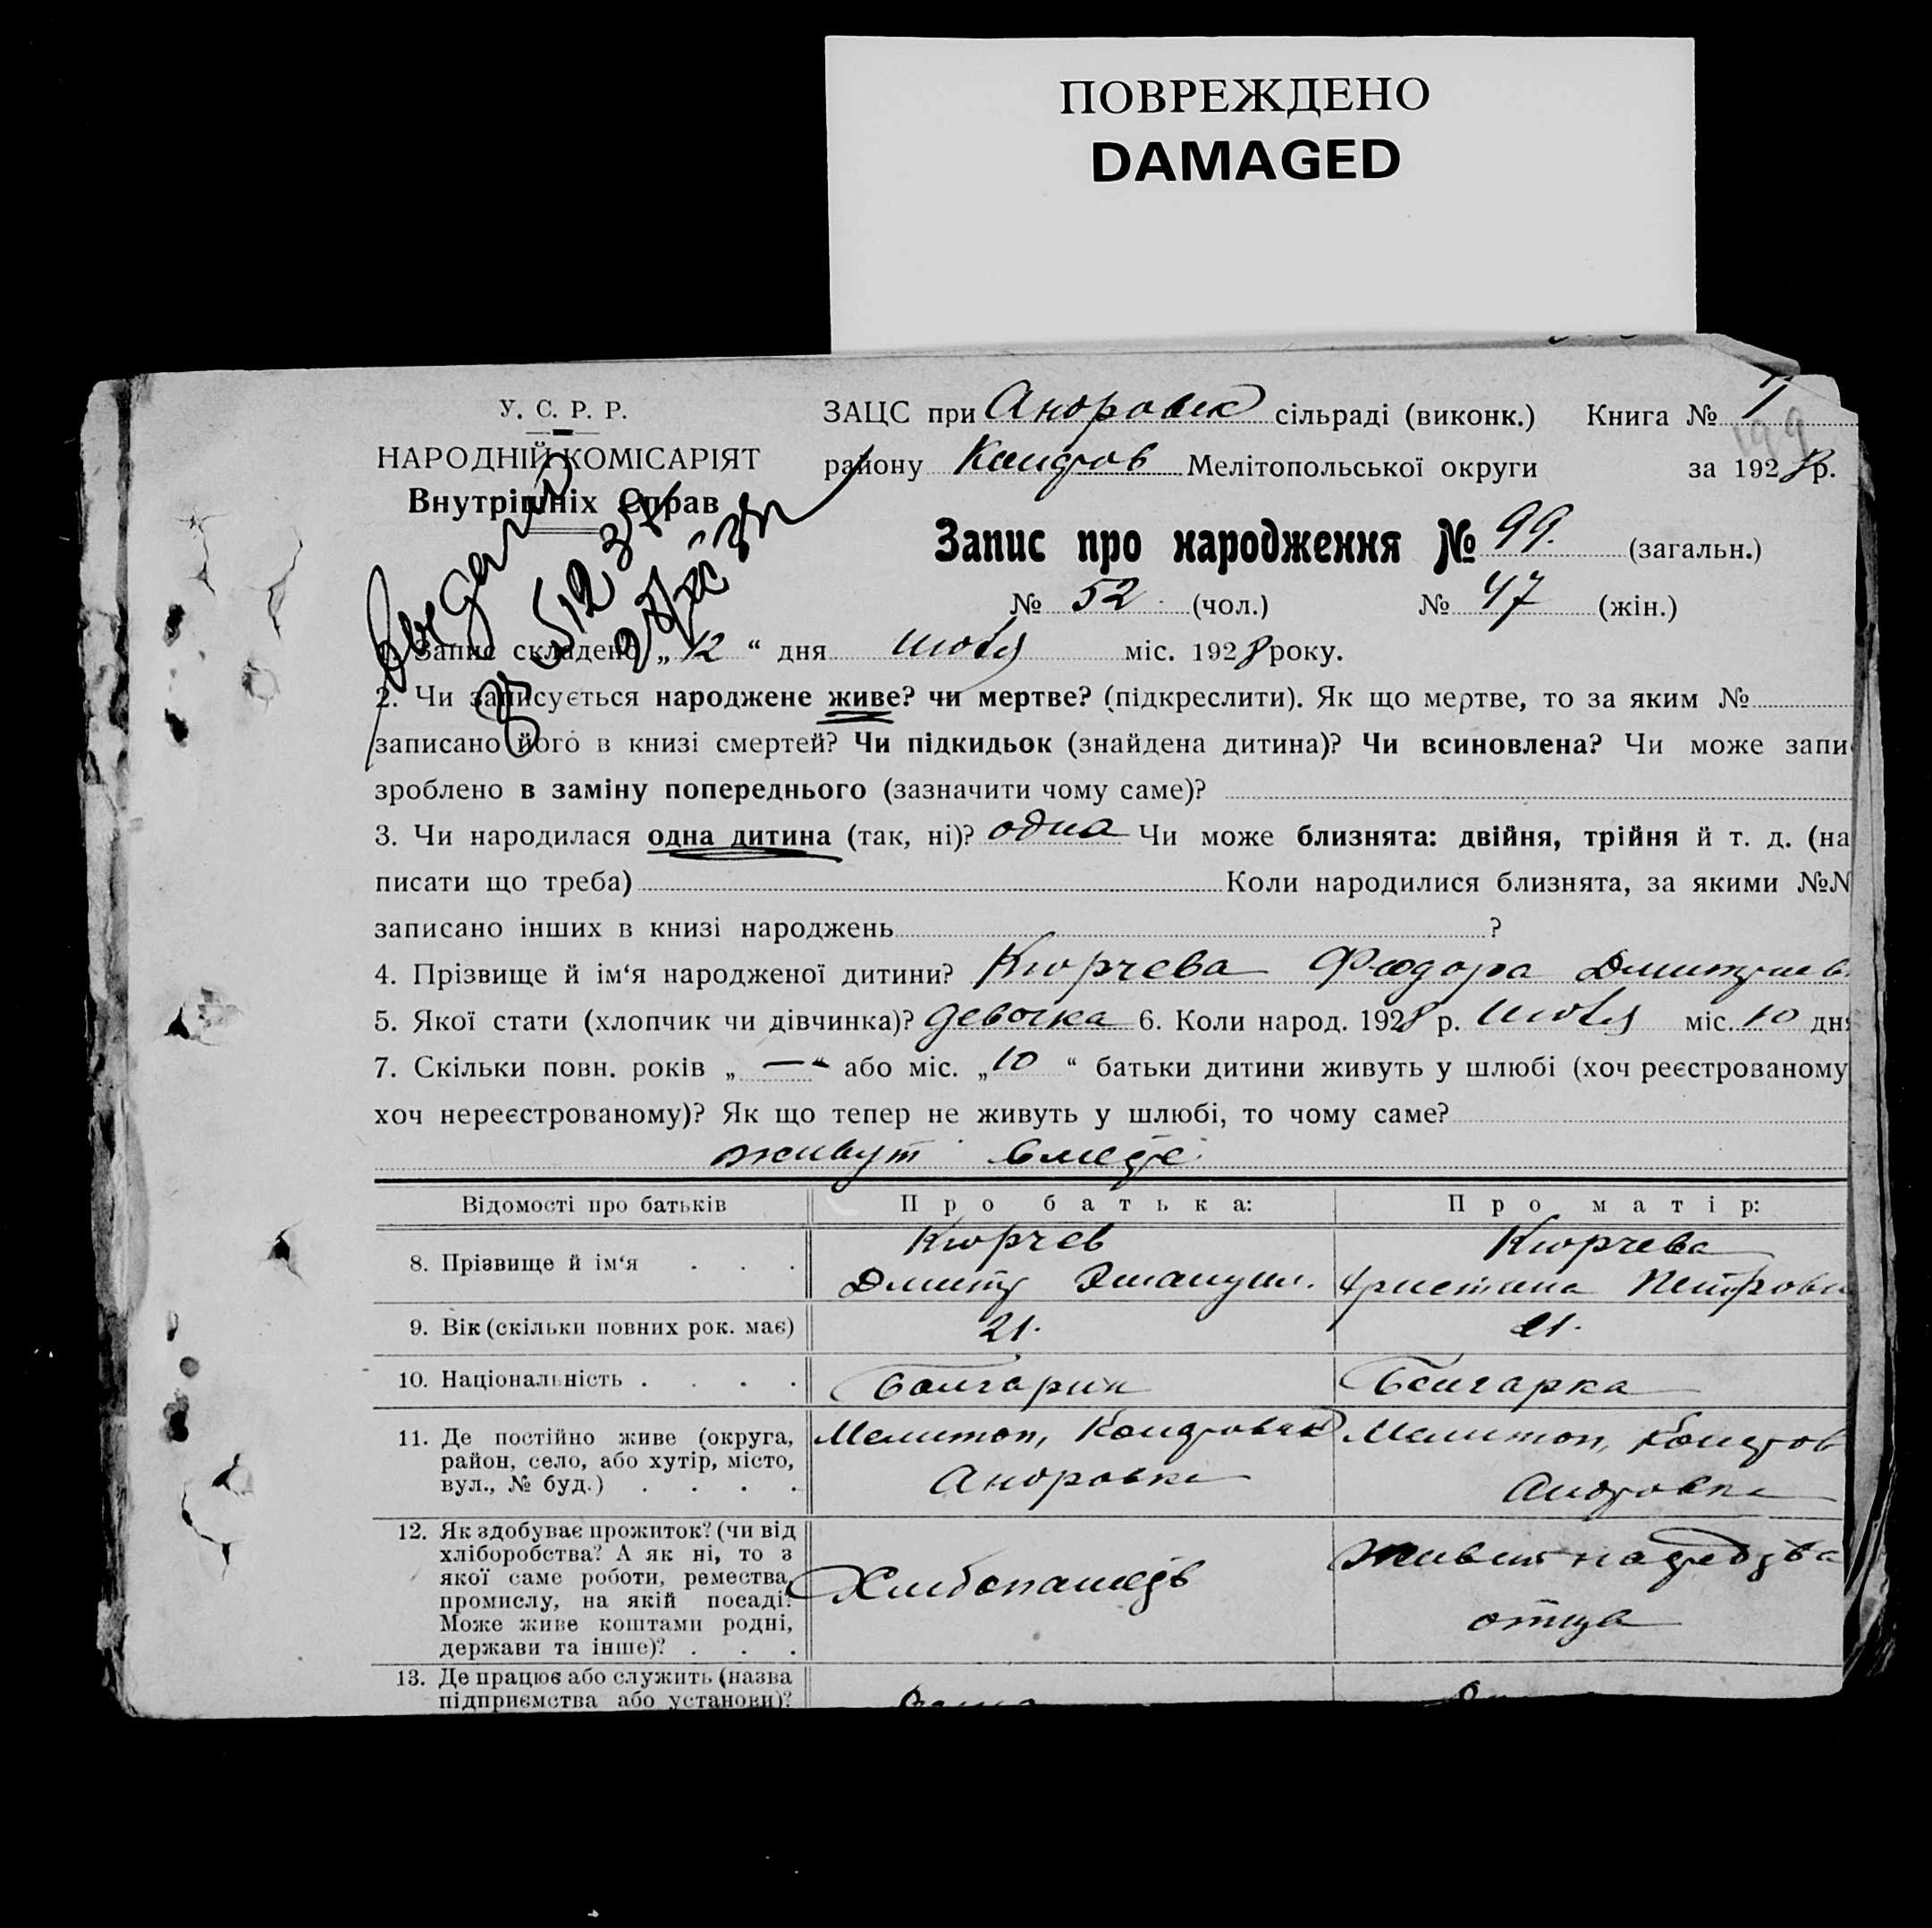 ПОВРЕЖДЕНО
DAMAGED
У. С. Р. Р.
НАРОДНІЙ КОМІСАРІЯТ
Внутрішніх Справ
ЗАЦС при Андровск сільраді (виконк.) Книга № 1
199
району Мелітопольської округи за 1928 р.
Запис про народження № 99. (загальн.)
№ 52 (чол.) № 47 (жін.)
1. Запис складено „12“ дня июля міс. 1928 року.
2. Чи записується народжене живе? чи мертве? (підкреслити). Як що мертве, то за яким №
записано його в книзі смертей? Чи підкидьок (знайдена дитина)? Чи всиновлена? Чи може запи
зроблено в заміну попереднього (зазначити чому саме)?
3. Чи народилася одна дитина (так, ні)? одна Чи може близнята: двійня, трійня й т. д. (на
писати що треба) Коли народилися близнята, за якими №N
записано інших в книзі народжень ?
4. Прізвище й ім‘я народженої дитини? Кюрчева Федора Дмитриев
5. Якої стати (хлопчик чи дівчинка)? девочка 6. Коли народ. 1928 р. июля міс. 10 дня
7. Скільки повн. років „—“ або міс. „10“ батьки дитини живуть у шлюбі (хоч реєстрованому
хоч нереєстрованому)? Як що тепер не живуть у шлюбі, то чому саме?
живут вместе
Відомості про батьків Про батька: Про матір:
8. Прізвище й ім‘я . . . Кюрчев Кюрчева
Дмитр Эмануил. Христина Петровн
9. Вік (скільки повних рок. має) 21. 21.
10. Національність . . . . Болгарин Болгарка
11. Де постійно живе (округа, район, село, або хутір, місто, вул., № буд.) . . . . Мелитоп, Мелитоп,
Андровка Андровка
12. Як здобуває прожиток? (чи від хліборобства? А як ні, то з якої саме роботи, ремества, промислу, на якій посаді? Може живе коштами родні, держави та інше)? . . . Хлибопашедь живет на
отца
13. Де працює або служить (назва
підприємства або установи)?